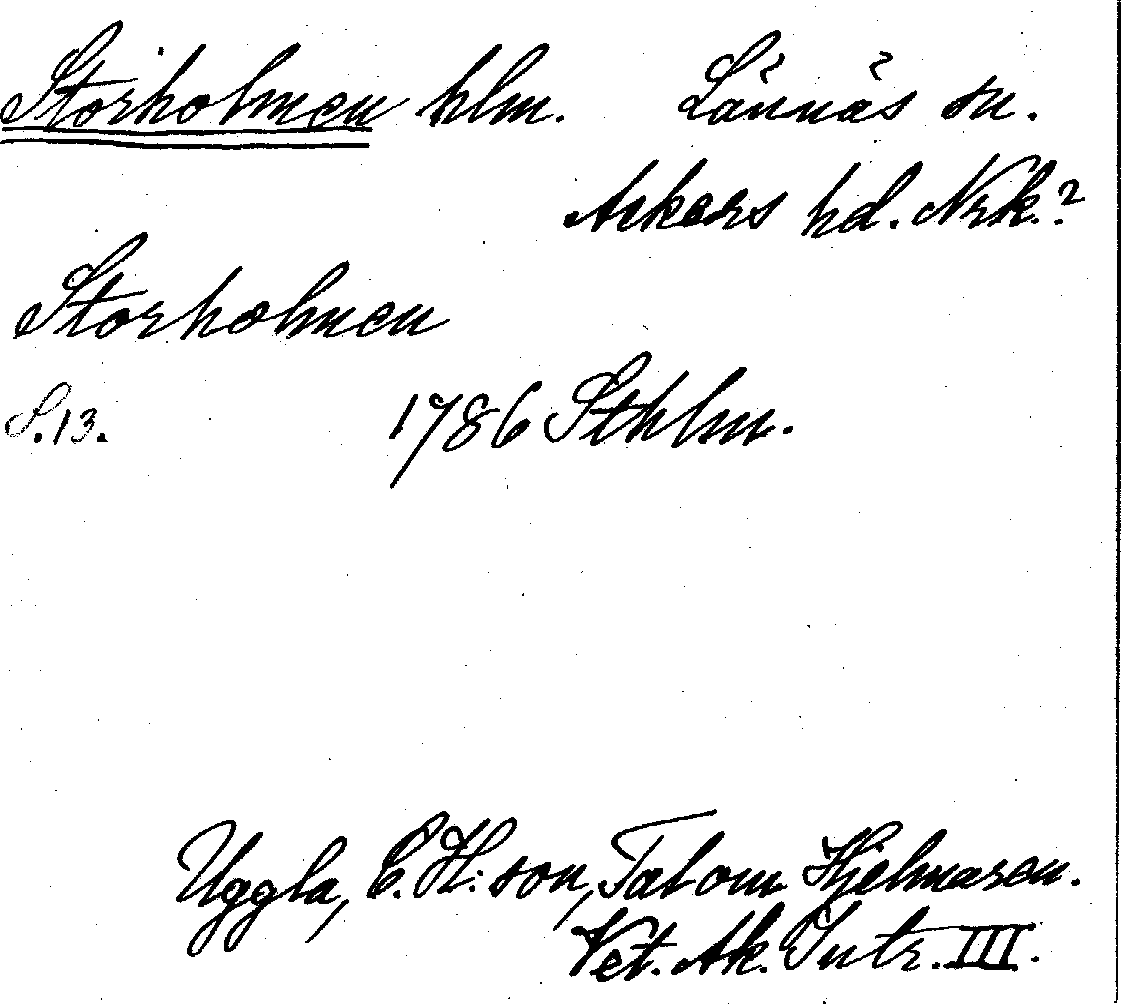 Storholmen hlm. Lännäs sn.
Askers hd. Nrk.?
Storholmen
S.13. 1786 Sthlm.
Uggla, C. H:son, Tal om Hjelmaren.
Vet. Ak. Intr. III.